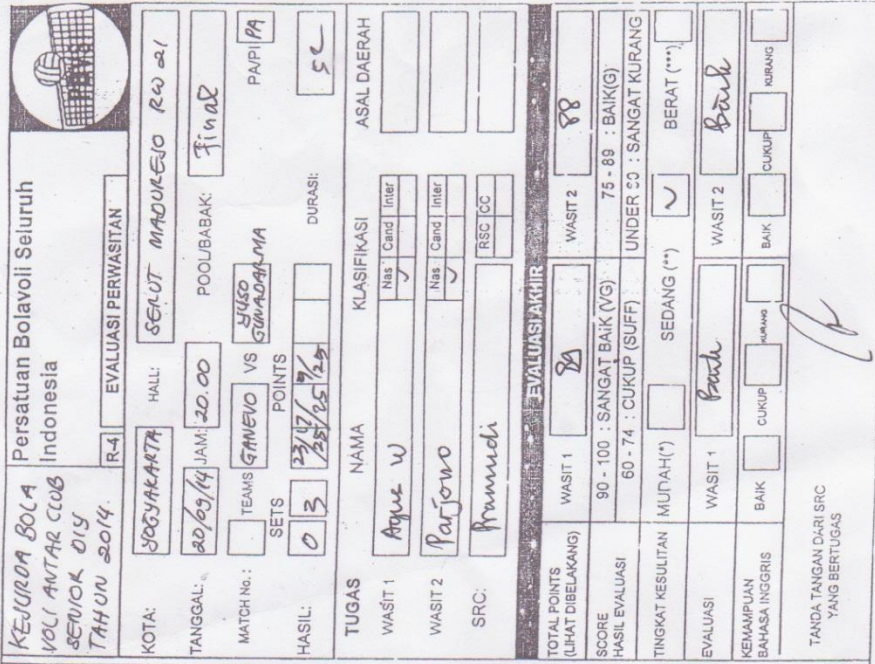 KEJURDA BOLA
VOLI ANTAR CLUB
SENIOR DIY
TAHUN 2014
Persatuan Bolavoli Seluruh
Indonesia
R-4 EVALUASI PERWASITAN
KOTA: YOGYAKARTA HALL: SERUT MADUREJO RW 21
TANGGAL: 20/09/14 JAM: 20.00 POOL/BABAK: Final
MATCH No.: TEAMS GANEVO VS YUSO GUNADARMA PA/PI PA
SETS POINTS
HASIL: 0 3 23/25 17/25 19/25 DURASI:
TUGAS NAMA KLASIFIKASI ASAL DAERAH
Nas Cand Inter
WASIT 1 Agus W ✓
Nas Cand Inter
WASIT 2 Parjono ✓
RSC CC
SRC: Pramudi
EVALUASI AKHIR
TOTAL POINTS
(LIHAT DIBELAKANG) WASIT 1 89 WASIT 2 88
SCORE
HASIL EVALUASI
90 - 100 : SANGAT BAIK (VG) 75 - 89 : BAIK(G)
60 - 74 : CUKUP (SUFF) UNDER : SANGAT KURANG
TINGKAT KESULITAN MUDAH(*) SEDANG (**) ✓ BERAT (***)
EVALUASI WASIT 1 Baik WASIT 2 Baik
KEMAMPUAN
BAHASA INGGRIS
BAIK CUKUP KURANG BAIK CUKUP KURANG
TANDA TANGAN DARI SRC
YANG BERTUGAS